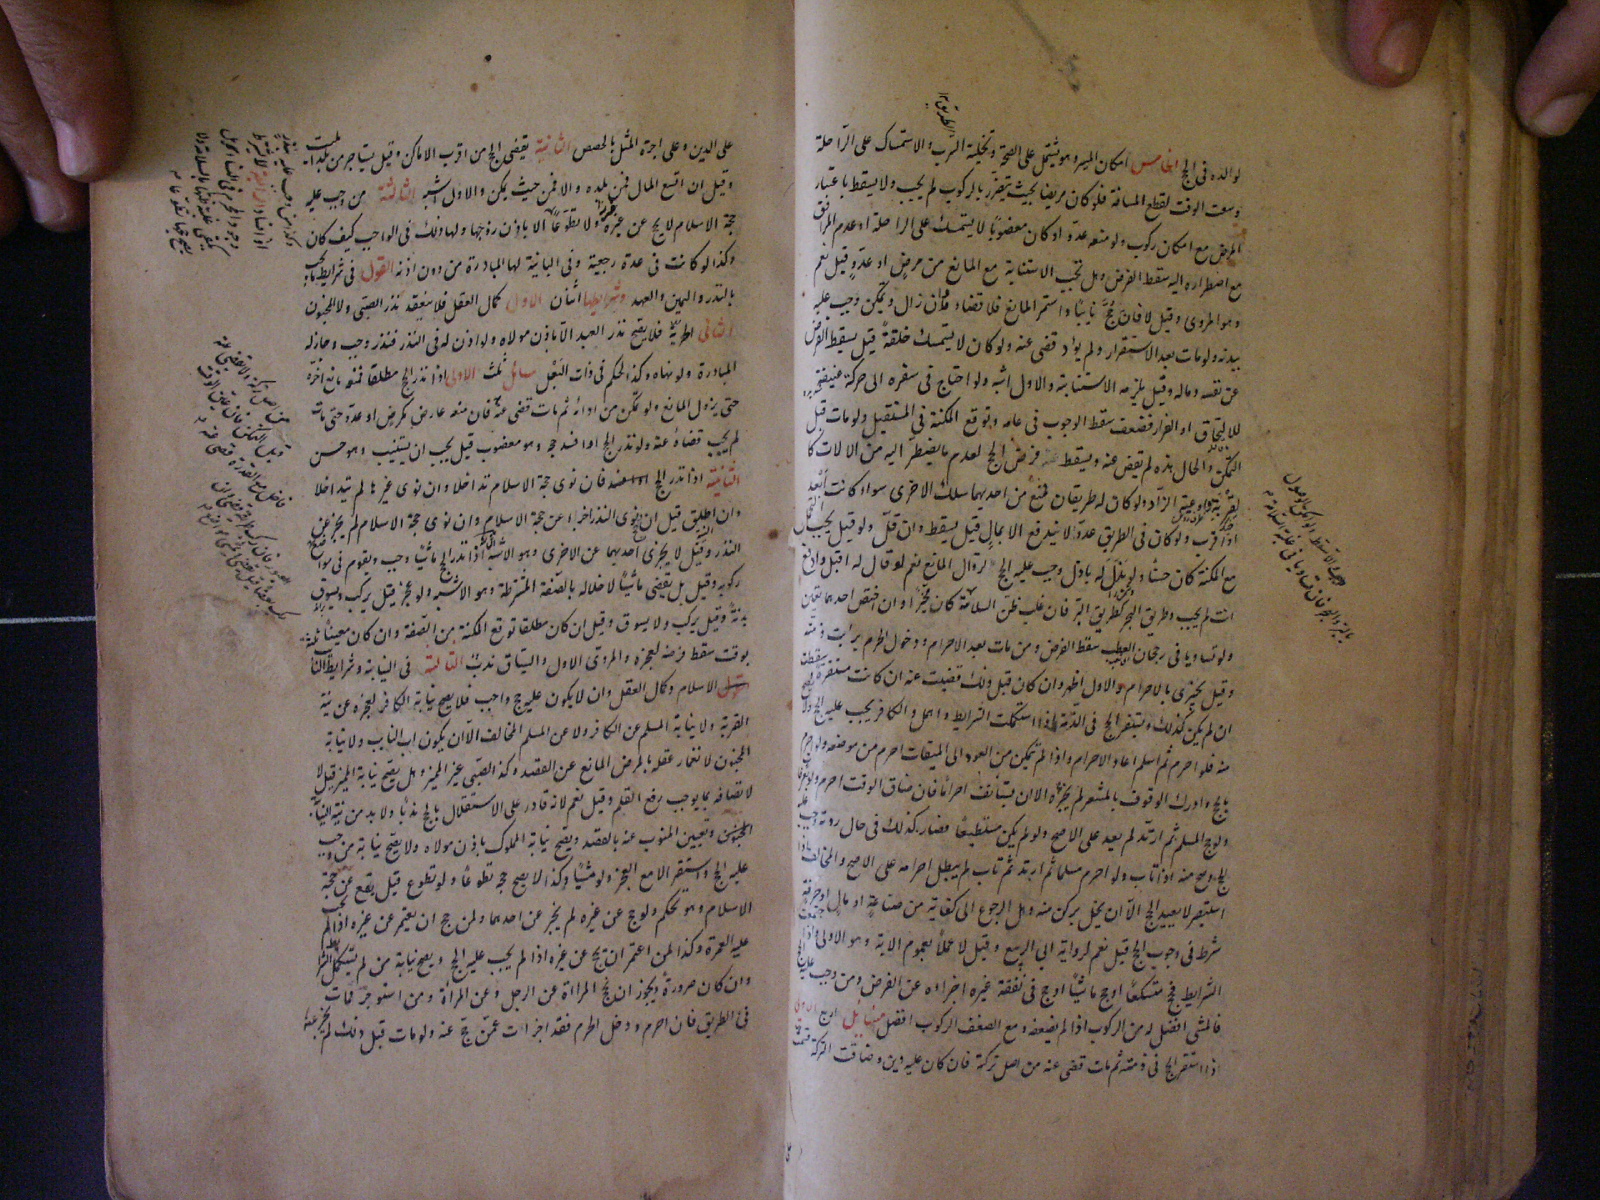 لوالده فى الحج الخامس امكان المسير وهو يشتمل على الصحة وتخلية السرب والاستمساك على الراحلة
وسعت الوقت لقطع المسافة فلو كان مريضا بحيث يتضرر بالركوب لم يجب ولا يسقط باعتبار
المرض مع امكان ركوب ولو منعه عدو او كان معضوبا لا يستمسك على الراحلة او عدم المرافق
مع اضطراره اليه سقط الفرض وهل تجب الاستنابة مع المانع من مرض او عدو قيل نعم
وهو المروى وقيل لا فان حج نايبا واستمر المانع فلا قضاء وان زال وتمكن وجب عليه
ببدنه ولو مات بعد الاستقرار ولم يؤد قضى عنه ولو كان لا يستمسك خلقة قيل يسقط الفرض
عن نفسه وماله وقيل يلزمه الاستنابة والاول اشبه ولو احتاج فى سفره الى حركة عنيفة
للالتحاق او الفرار فضعف سقط الوجوب فى عامه وتوقع المكنة فى المستقبل ولو مات قبل
التمكن والحال هذه لم يقض عنه ويسقط فرض الحج لعدم ما يضطر اليه من الالات كا
لقربة واوعية الزاد ولو كان له طريقان فمنع من احديهما سلك الاخرى سواء كانت ابعد
او اقرب ولو كان فى الطريق عدو لا يندفع الا بمال قيل يسقط وان قل ولو قيل يجب التحمل
مع المكنة كان حسنا ولو بذل له باذل وجب عليه الحج لزوال المانع نعم لو قال له اقبل وادفع
انت لم يجب وطريق البحر كطريق البر فان غلب ظن السلامة كان مخيرا وان اختص احدهما تعين
ولو تساويا فى رجحان العطب سقط الفرض ومن مات بعد الاحرام ودخول الحرم برأت ذمته
وقيل يجتزى بالاحرام والاول اظهر وان كان قبل ذلك قضيت عنه ان كانت مستقرة وسقطت
ان لم يكن كذلك ويستقر الحج فى الذمة اذا استكملت الشرايط واهمل والكافر يجب عليه الحج ولا يصح
منه فلو احرم ثم اسلم اعاد الاحرام واذا لم يتمكن من العود الى الميقات احرم من موضعه ولو احرم
بالحج وادرك الوقوف بالمشعر لم يجزه الا ان يستأنف احراما فان ضاق الوقت احرم ولو بعرفات
ولو حج المسلم ثم ارتد لم يعد على الاصح ولو لم يكن مستطيعا فصار كذلك فى حال ردته وجب عليه
الحج وصح منه اذا تاب ولو احرم مسلما ثم ارتد ثم تاب لم يبطل احرامه على الاصح والمخالف اذا
استبصر لا يعيد الحج الا ان يخل بركن منه وهل الرجوع الى كفاية من صناعة او مال او حرفة
شرط فى وجوب الحج قيل نعم لرواية ابى الربيع وقيل لا عملا بعموم الاية وهو الاولى واذا اجتمعت
الشرايط فحج متسكعا او حج ماشيا او حج فى نفقة غيره اجزاه عن الفرض ومن وجب عليه الحج
فالمشى افضل له من الركوب اذا لم يضعفه ومع الضعف الركوب افضل مسائل اربع الاولى
اذا استقر الحج فى ذمته ثم مات قضى عنه من اصل تركة فان كان عليه دين وضاقت التركة قسمت
على الدين وعلى اجرة المثل بالحصص الثانية يقضى الحج من اقرب الاماكن وقيل يستاجر من بلد الميت
وقيل ان اتسع المال فمن بلده والا فمن حيث يمكن والاول اشبه الثالثة من وجب عليه
حجة الاسلام لا يحج عن غيره ولا تطوعا الا باذن زوجها ولها ذلك فى الواجب كيف كان
وكذا لو كانت فى عدة رجعية وفى البائنة لها المبادرة من دون اذنه القول فى شرايط ما يجب
بالنذر واليمين والعهد وشرايطها اثنان الاول كمال العقل فلا ينعقد نذر الصبى ولا المجنون
الثانى الحرية فلا يصح نذر العبد الا باذن مولاه ولو اذن له فى النذر فنذر وجب وجاز له
المبادرة ولو نهاه وكذا الحكم فى ذات البعل مسائل ثلث الاولى اذا نذر الحج مطلقا فمنعه مانع اخره
حتى يزول المانع ولو تمكن من ادائه ثم مات قضى عنه فان منعه عارض كمرض او عدو حتى مات
لم يجب قضاؤه عنه ولو نذر الحج او افسد حجه وهو معضوب قيل يجب ان يستنيب وهو حسن
الثانية اذا نذر الحج فان نوى حجة الاسلام تداخلا وان نوى غيرها لم يتداخلا
وان اطلق قيل ان نوى النذر اجزا عن حجة الاسلام وان نوى حجة الاسلام لم يجز عن
النذر وقيل لا يجزى احديهما عن الاخرى وهو الاشبه اذا نذر الحج ماشيا وجب ويقوم فى مواضع
ركوبه وقيل بل يقضى ماشيا لاخلاله بالصفة المشترطة وهو الاشبه ولو عجز قيل يركب ويسوق
بدنة وقيل يركب ولا يسوق وقيل ان كان مطلقا توقع المكنة من الصفة وان كان معينا
بوقت سقط فرضه لعجزه والمروى الاول والسياق ندب الثالثة فى النيابة وشرايط النائب
الاسلام وكمال العقل وان لا يكون عليه حج واجب فلا يصح نيابة الكافر لعجزه عن نية
القربة ولا نيابة المسلم عن الكافر ولا عن المسلم المخالف الا ان يكون اب النايب ولا نيابة
المجنون لانغمار عقله بالمرض المانع عن القصد وكذا الصبى غير المميز وهل يصح نيابة المميز قيل لا
لاتصافه بما يوجب رفع القلم وقيل نعم لانه قادر على الاستقلال بالحج ندبا ولا بد من نية النيابة
وتعيين المنوب عنه بالقصد ويصح نيابة المملوك باذن مولاه ولا يصح نيابة من وجب
عليه الحج واستقر الا مع العجز ولو مشيا وكذا لا يصح حجه تطوعا ولو تطوع قيل يقع عن حجة
الاسلام وهو تحكم ولو حج عن غيره لم يجز عن احدهما ولمن حج ان يعتمر عن غيره اذا لم يجب
عليه العمرة وكذا لمن اعتمر ان يحج عن غيره اذا لم يجب عليه الحج ويصح نيابة من لم يستكمل الشرايط
وان كان صرورة ويجوز ان يحج المراة عن الرجل وعن المراة ومن استوجر فمات
فى الطريق فان احرم ودخل الحرم فقد اجزات عمن حج عنه ولو مات قبل ذلك لم يجز عنه